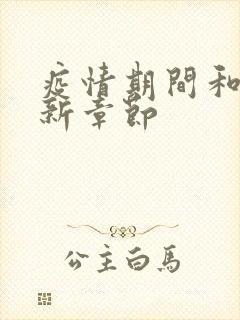 疫情期間和
新章節
公主白馬